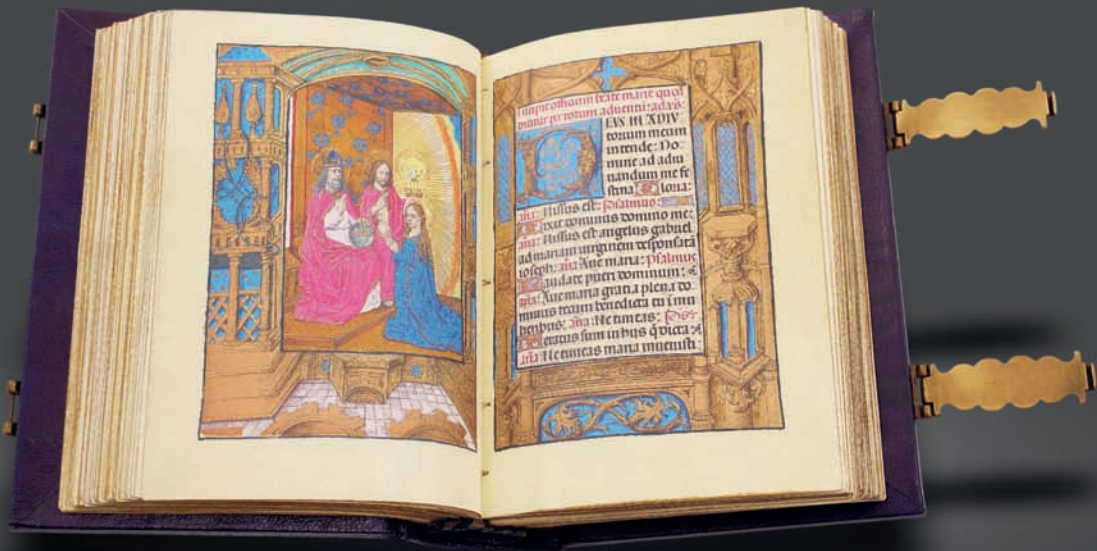 Incipit officium beate marie quod
dicitur per totum adventū: ad vs̄.
EVS IN ADIV
torium meum
intende: Do
mine ad adiu
uandum me fe
stina Gloria:
añā: Missus est: Psalmus:
Dixit dominus domino me:
añā: Missus est angelus gabriel
ad mariam virginem desponsatā
ioseph: añā Aue maria: Psalmus
Laudate pueri dominum:
añā: Aue maria gratia plena do
minus tecum benedicta tu ī mu
lieribus: añā: Ne timeas: Ps:
Letatus sum in his q̄ dicta:
añā Ne timeas maria inuenisti: